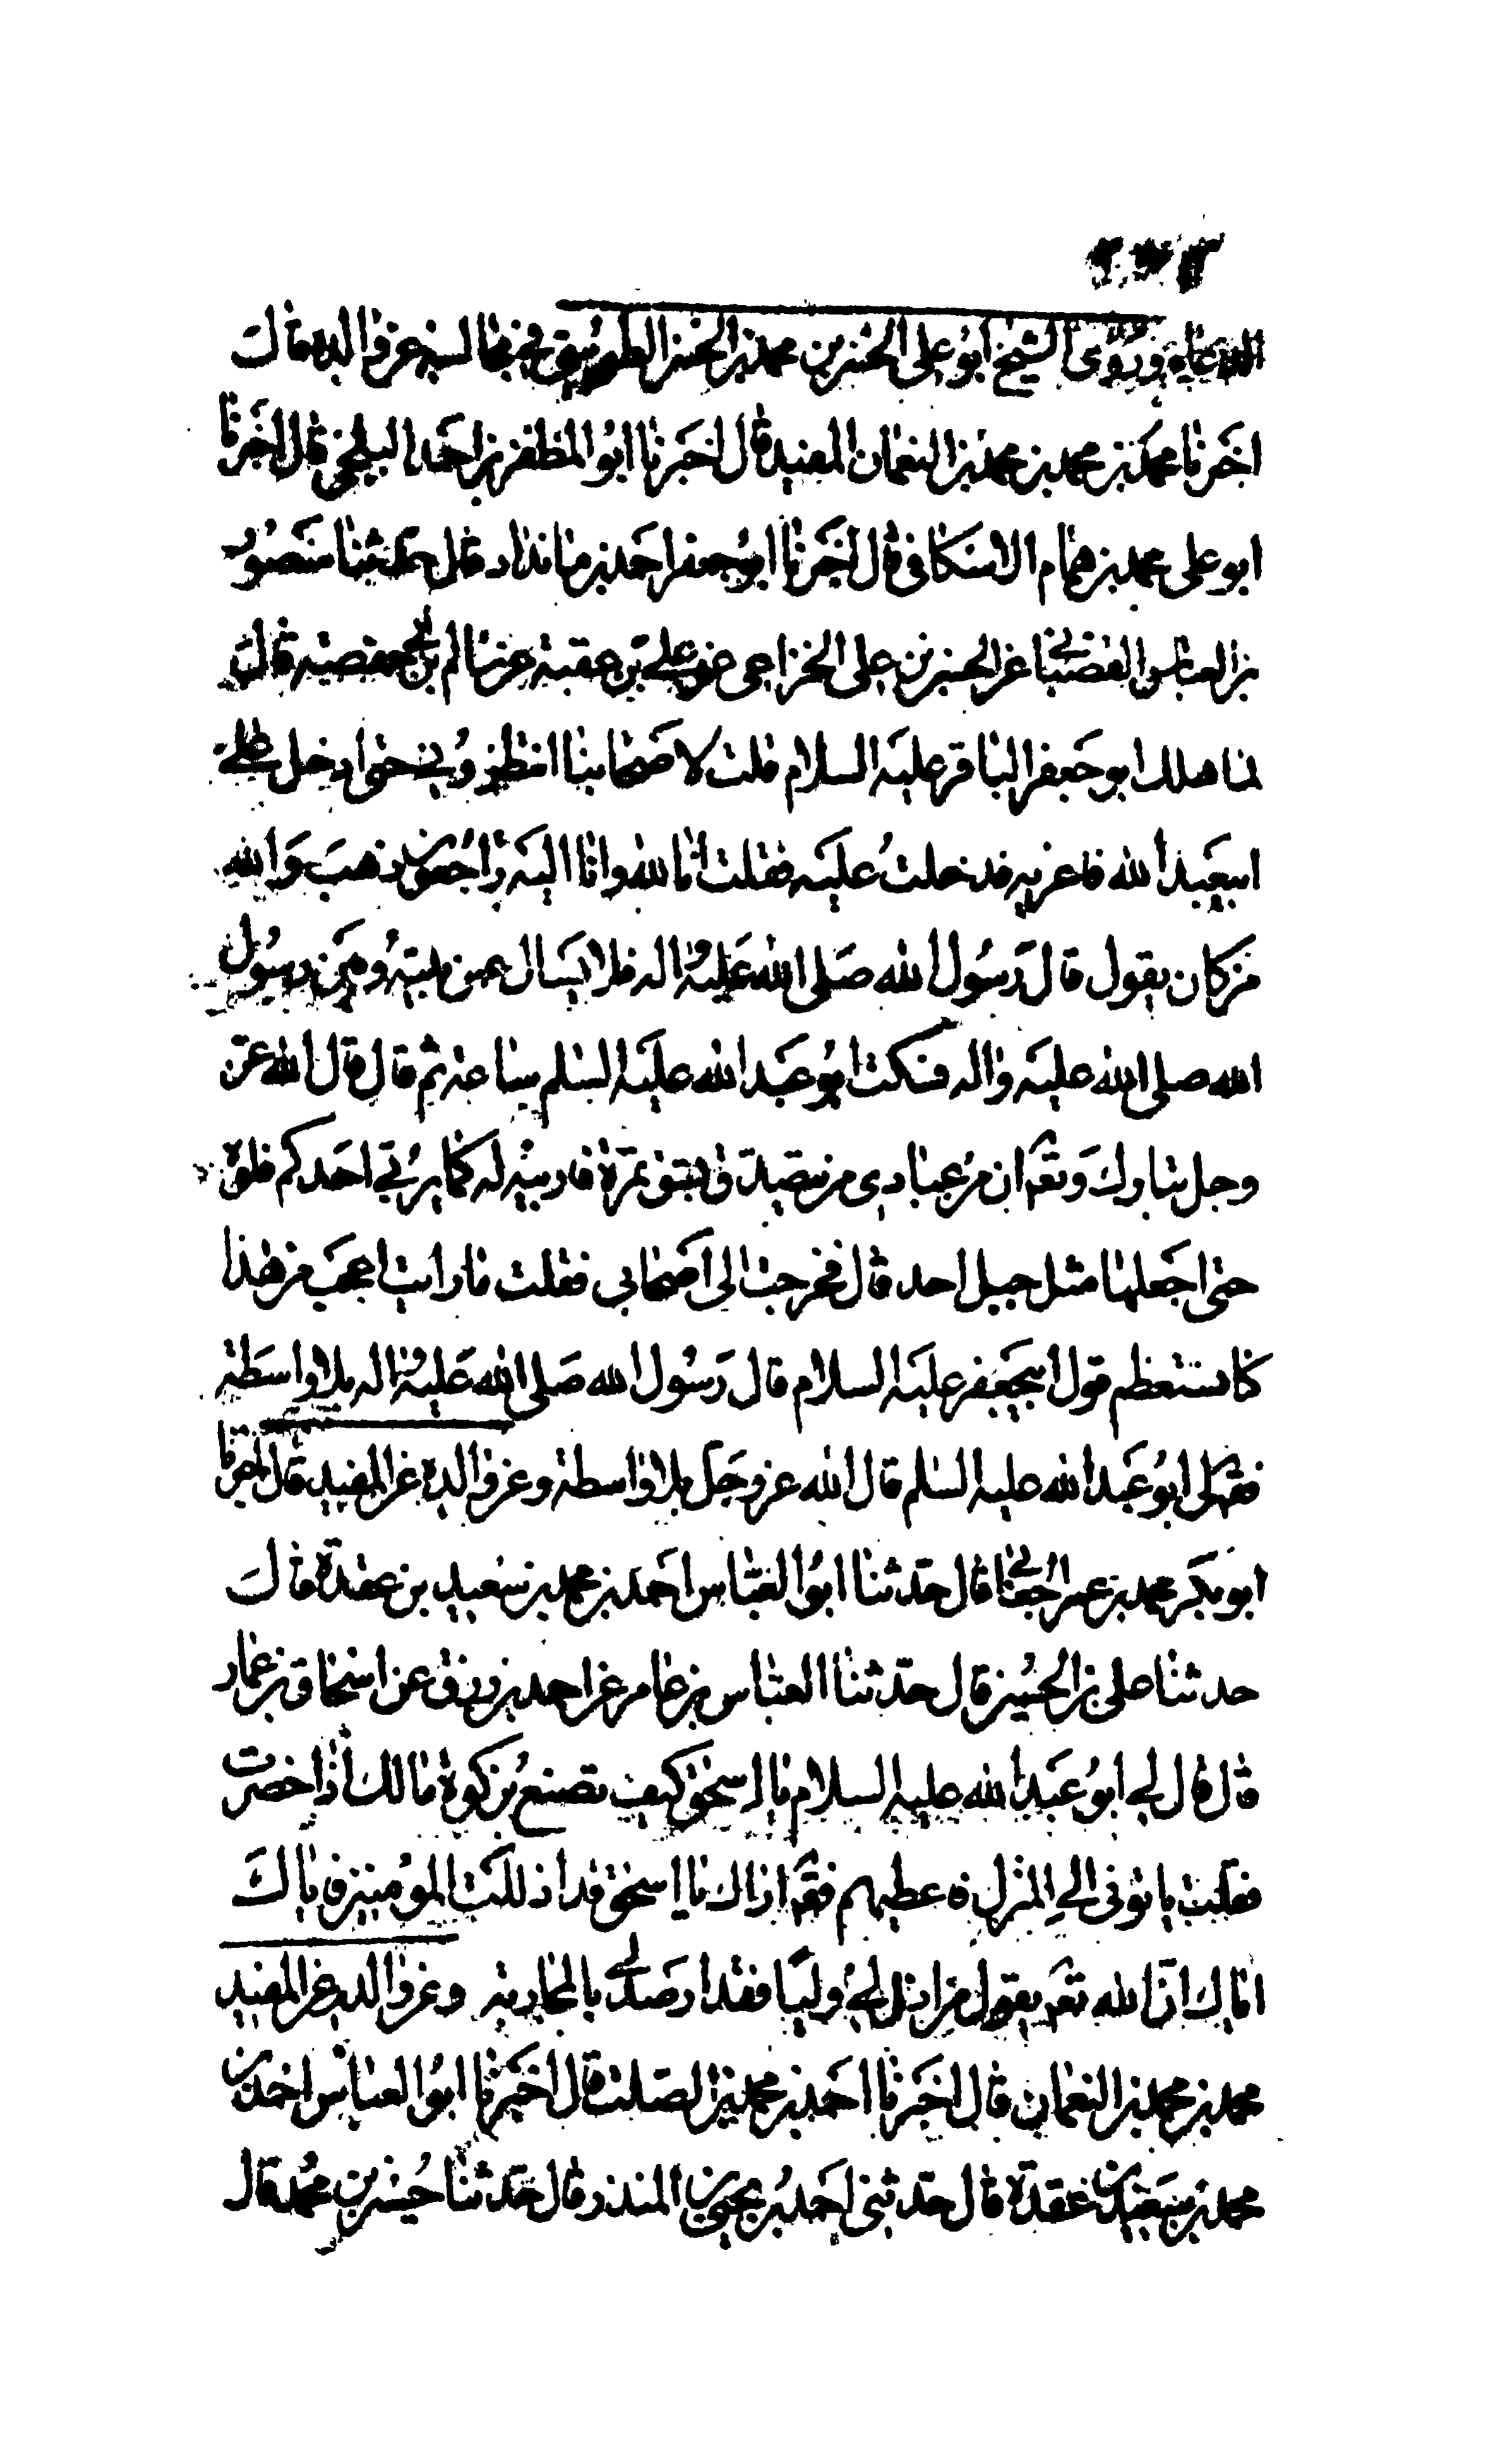 وروى الشيخ ابو على الحسن بن محمد بن الحسن الطوسى فى مجالسه عن والده قال
اخبرنا محمد بن محمد بن محمد بن النعمان المفيد قال اخبرنا ابو المظفر بن احمد البلخى قال اخبرنا
ابو على محمد بن همام الاسكافى قال اخبرنا ابو جعفر احمد بن مابنداد قال حدثنا منصور
بن العباس القصبانى عن الحسن بن على الخزاعى عن على بن عقبة عن سالم بن ابى حفصيه قال
لما هلك ابو جعفر الباقر عليه السلام قلت لاصحابنا انتظرونى حتى ادخل على
ابيعبد الله فاعزيه فدخلت عليه فقلت انا لله وانا اليه راجعون ذهب والله
من كان يقول قال رسول الله صلى الله عليه واله فلا يسال عمن بينه وبين رسول
الله صلى الله عليه واله فسكت ابو عبد الله عليه السلم ساعة ثم قال قال الله عز
وجل تبارك وتعه ان من عبادى من يتصدق بشق تمرة فاربيها له كما يربى احدكم فلوه
حتى اجعلها مثل جبل احد قال فخرجت الى اصحابى فقلت ما رايت اعجب من هذا
كنا نستعظم قول ابيجعفر عليه السلام قال رسول الله صلى الله عليه واله بلا واسطة
فقال لى ابو عبد الله عليه السلم قال الله عز وجل بلا واسطة وعن والده عن المفيد قال اخبرنا
ابو بكر محمد بن عمر الجعابى قال حدثنا ابو العباس احمد بن محمد بن سعيد بن عقدة قال
حدثنا على بن الحسين قال حدثنا العباس بن عامر عن احمد بن رزق عن اسحاق بن عمار
قال قال لى ابو عبد الله عليه السلام يا اسحق كيف تصنع بزكوة مالك اذا حضرت
فقلت ياتونى الى المنزل فاعطيهم فقه اراك يا اسحق قد اذللت المؤمنين فاياك
اياك ان الله تعه يقول من اذل لى وليا فقد ارصد لى بالمحاربة وعن والده عن المفيد
محمد بن محمد بن النعمان قال اخبرنا احمد بن محمد بن الصلت قال اخبرنا ابو العباس احمد بن
محمد بن سعيد بن عقدة قال حدثنى احمد بن يحيى بن المنذر قال حدثنا حسين بن محمد قال